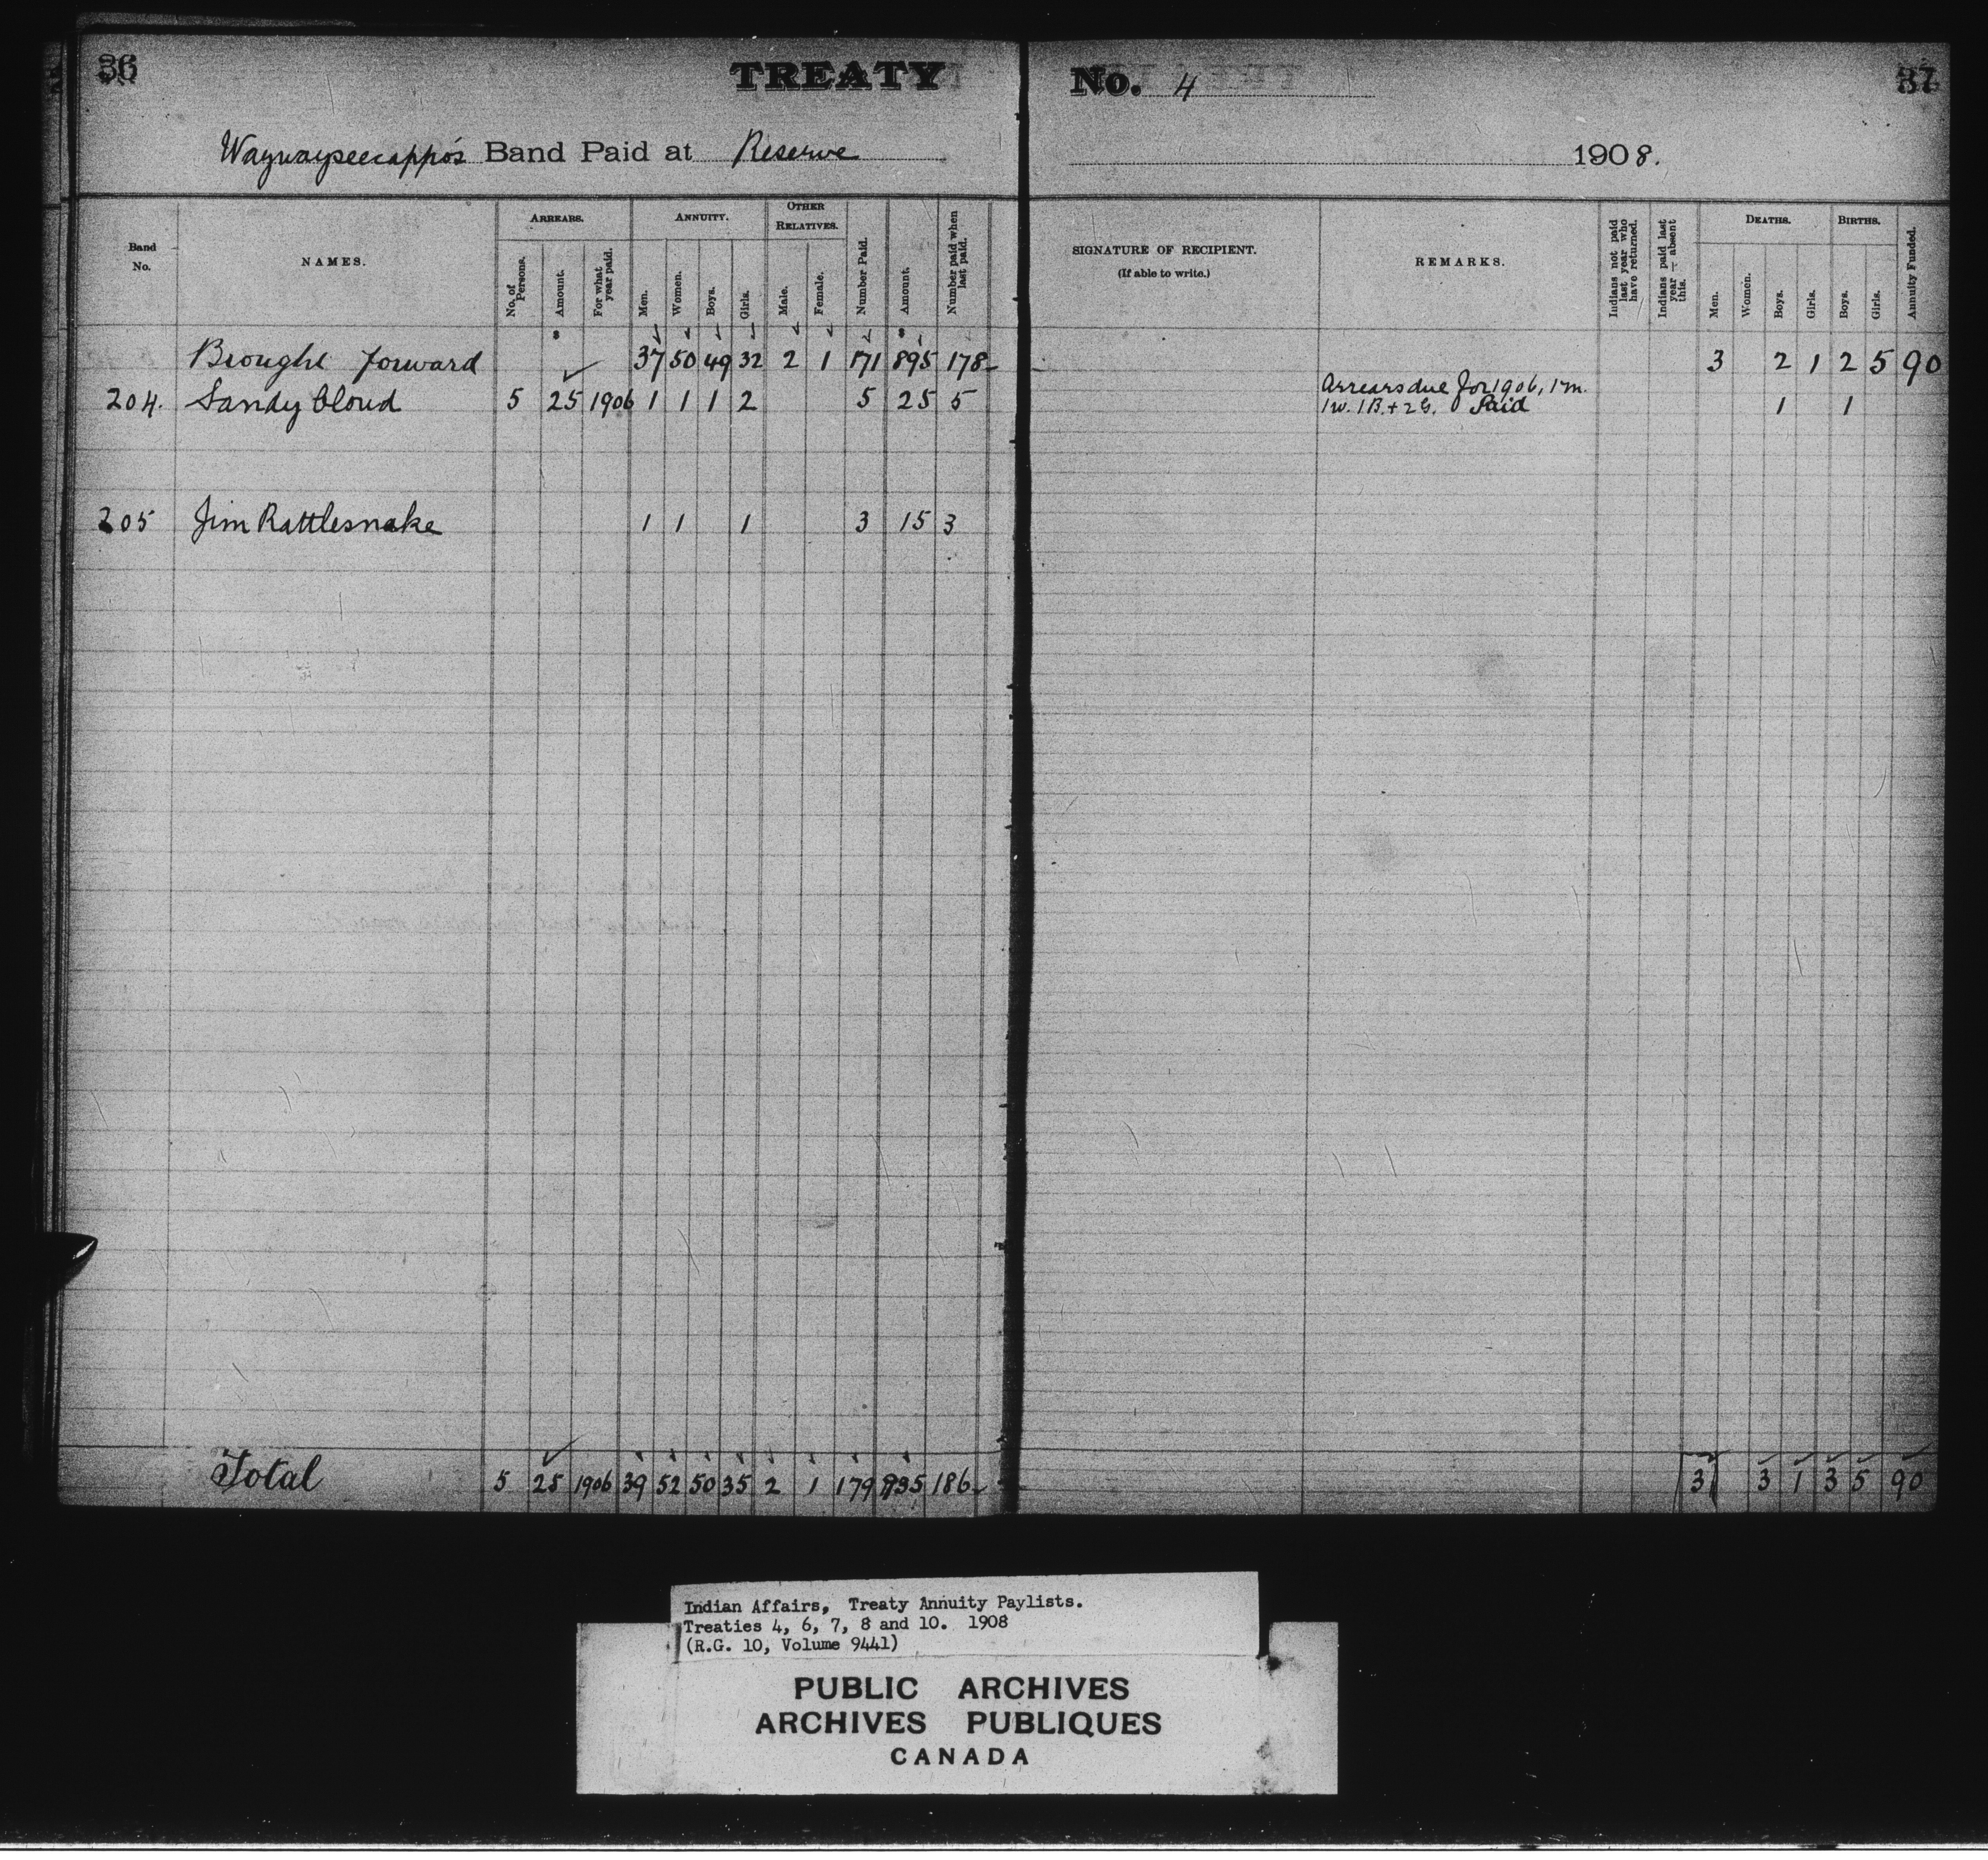 36 TREATY No. 4 37
Waywayseecappo's Band Paid at Reserve 1908.
Band No. NAMES. ARREARS. No. of Persons. Amount. For what year paid. ANNUITY. Men. Women. Boys. Girls. OTHER RELATIVES. Male. Female. Number Paid. Amount. Number paid when last paid. SIGNATURE OF RECIPIENT. (If able to write.) REMARKS. Indians not paid last year who have returned. Indians paid last year — absent this. DEATHS. Men. Women. Boys. Girls. BIRTHS. Boys. Girls. Annuity Funded.
$ $
Brought forward 37 50 49 32 2 1 171 895 178 3 2 1 2 5 90
204. Sandy Cloud 5 25 1906 1 1 1 2 5 25 5 Arrears due for 1906, 1 m. 1 w. 1 B. + 2 G. Paid 1 1
205 Jim Rattlesnake 1 1 1 3 15 3
Total 5 25 1906 39 52 50 35 2 1 179 935 186 3 3 1 3 5 90
Indian Affairs, Treaty Annuity Paylists.
Treaties 4, 6, 7, 8 and 10. 1908
(R.G. 10, Volume 9441)
PUBLIC ARCHIVES
ARCHIVES PUBLIQUES
CANADA